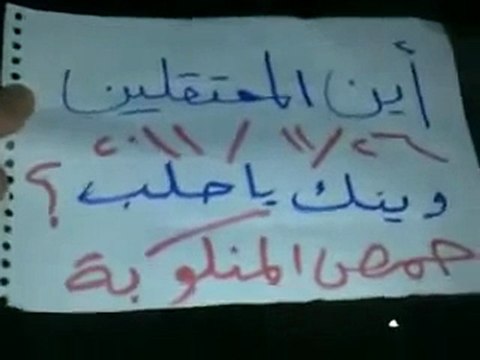 أين المعتقلين
٢٠١١/١١/٢٦
وينك يا حلب ؟
حمص المنكوبة